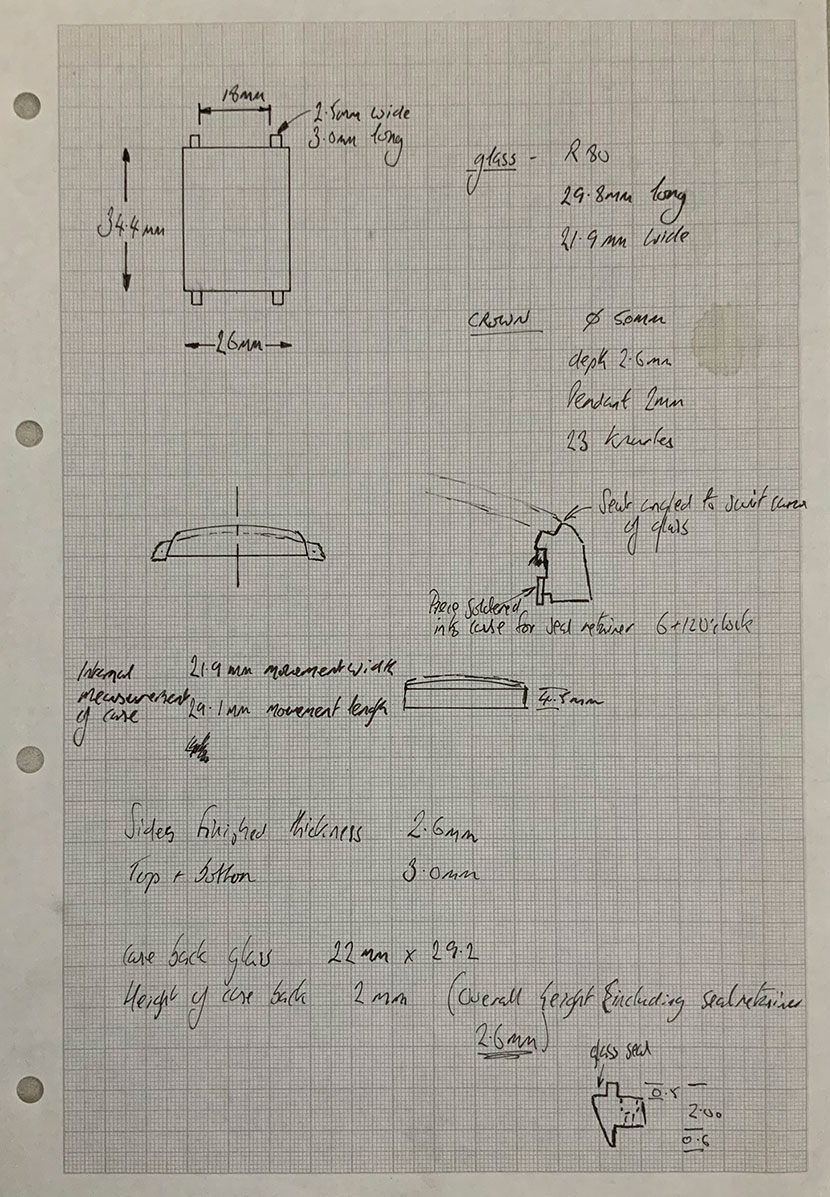 18mm
2.5mm wide
3.0mm long
34.4mm
26mm
glass - R 80
29.8mm long
21.9mm wide
CROWN ϕ 5.0mm
depth 2.6mm
Pendant 2mm
23 Knurles
Seat angled to suit curve
of glass
Piece soldered
into case for seal retainer 6+12 o'clock
Internal
measurement
of case
21.9 mm movement width
29.1mm movement length
4.3mm
Sides finished thickness 2.6mm
Top + bottom 3.0mm
Case back glass 22mm x 29.2
Height of case back 2mm (Overall height including seal retainer
2.6mm)
glass seal
0.5
2.00
0.6